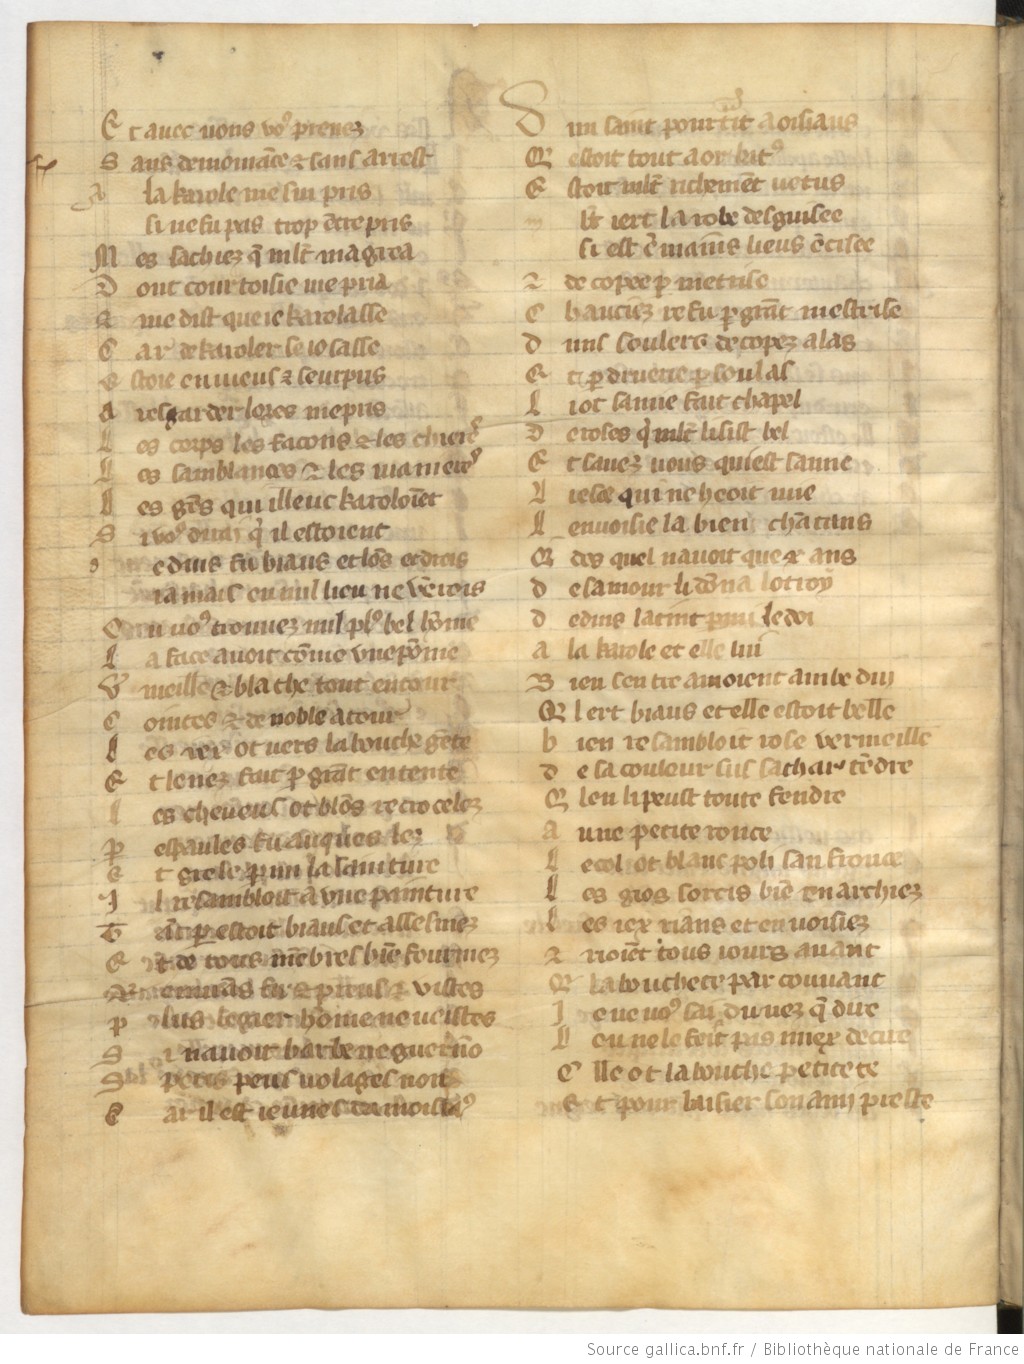 E t auec uons vo9 prenez
S ans demorance ⁊ sans arrest
A la karole me sui pris
si ne fu pas trop ẽtrepris
M es sachiez q̃ mlt̃ magrea
D ont courtoisie me pria
⁊ me dist que ie karolasse
C ar de karoler se iosasse
E stoie enuieus ⁊ seurpris
A resgarder lores me pris
L es corps les facons ⁊ les chieres
L es samblances ⁊ les manieres
L es gẽs qui illeuc karoloiẽt
S i vo9 dirai q̃ il estoient
eduis fu biaus et lõs et drois
ia mais en nul lieu ne vẽrois
O u vo9 trouuez nul pl9 bel hõme
L a face auoit cõme vne põme
V meille ⁊ blãche tout entour
C ointes ⁊ de noble atour
L es iex ot uers la bouche gẽte
E t le nez fait p grãt entente
L es cheueus ot blõs recrocelez
P espaules fu auques lez
E t grelle p mi la sainture
I l resambloit a vne painture
T ãt p estoit biaus et assesmez
E t de tous mẽbres biẽ fourmez
fu ⁊ preus ⁊ vistes
P lus legier hõme ne veistes
S i nauoit barbe ne guernõ
S petis peus volages non
C ar il est ieunes damoisiaus
D un samit pourtrit a oisiaus
Q estoit tout a or batu
E stoit mlt̃ richement uetus
lt̃ iert la robe desguisee
si est ẽ maints lieus ẽcisee
⁊ de copee p metrise
C hauciez refu p grãt mestrise
D uns soulers decopez a las
E t p druerie ⁊ p soulas
L i ot samie fait chapel
D e roses q̃ mlt̃ li sist bel
E t sauez uous qui est samie
L ieSce qui ne heoit mie
L enuoisie la bien chãtans
Q des quel nauoit que ⁊ ans
D e samour li dõna lotroy
D eduis la tint pmi le doi
A la karole et elle lui
B ien sentre amoient ambedui
Q l ert biaus et elle estoit belle
b ien resambloit rose vermeille
d e sa couleur sus sa char tẽdre
Q len li peust toute fendre
A une petite ronce
L e col ot blanc poli san fronce
L es gros sorcis biẽ enarchiez
L es iex rians et enuoisiez
⁊ rioiẽt tous iours auant
Q la bouchete par couuant
I e ne vo9 sai du nez q̃ dire
L eu ne le feit pas miex de cire
E lle ot la bouche petitete
E t pour baisier son ami preste
Source gallica.bnf.fr / Bibliothèque nationale de France